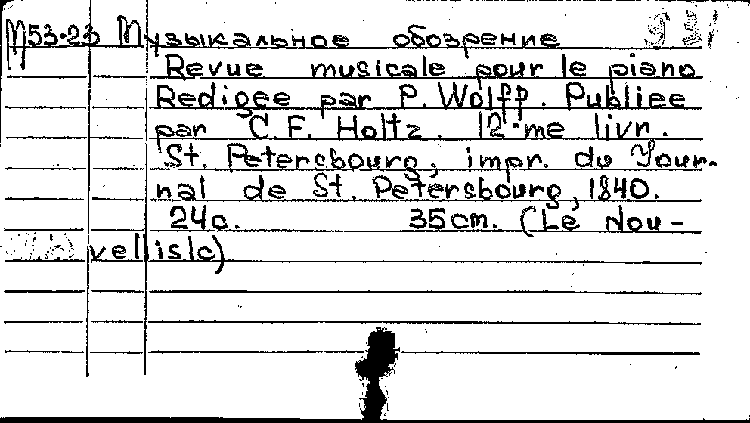 М53-23 Музыкальное обозрение
Revue musicale pour le piano
Redigee par P. Wolff. Publiee
par C. F. Holtz. 12-me livr.
St. Petersbourg, impr. du Jour-
nal de St. Petersbourg, 1840.
24с. 35cm. (Le Nou-
vellisle)